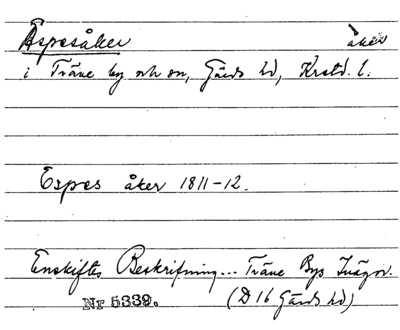 Äspesåker åker
i Träne by och sn, Gärds hd, Krstd. l.
Espes åker 1811-12.
Enskiftes Beskrifning... Träne Bys Inägor.
Nr 5339. (D16 Gärds hd)